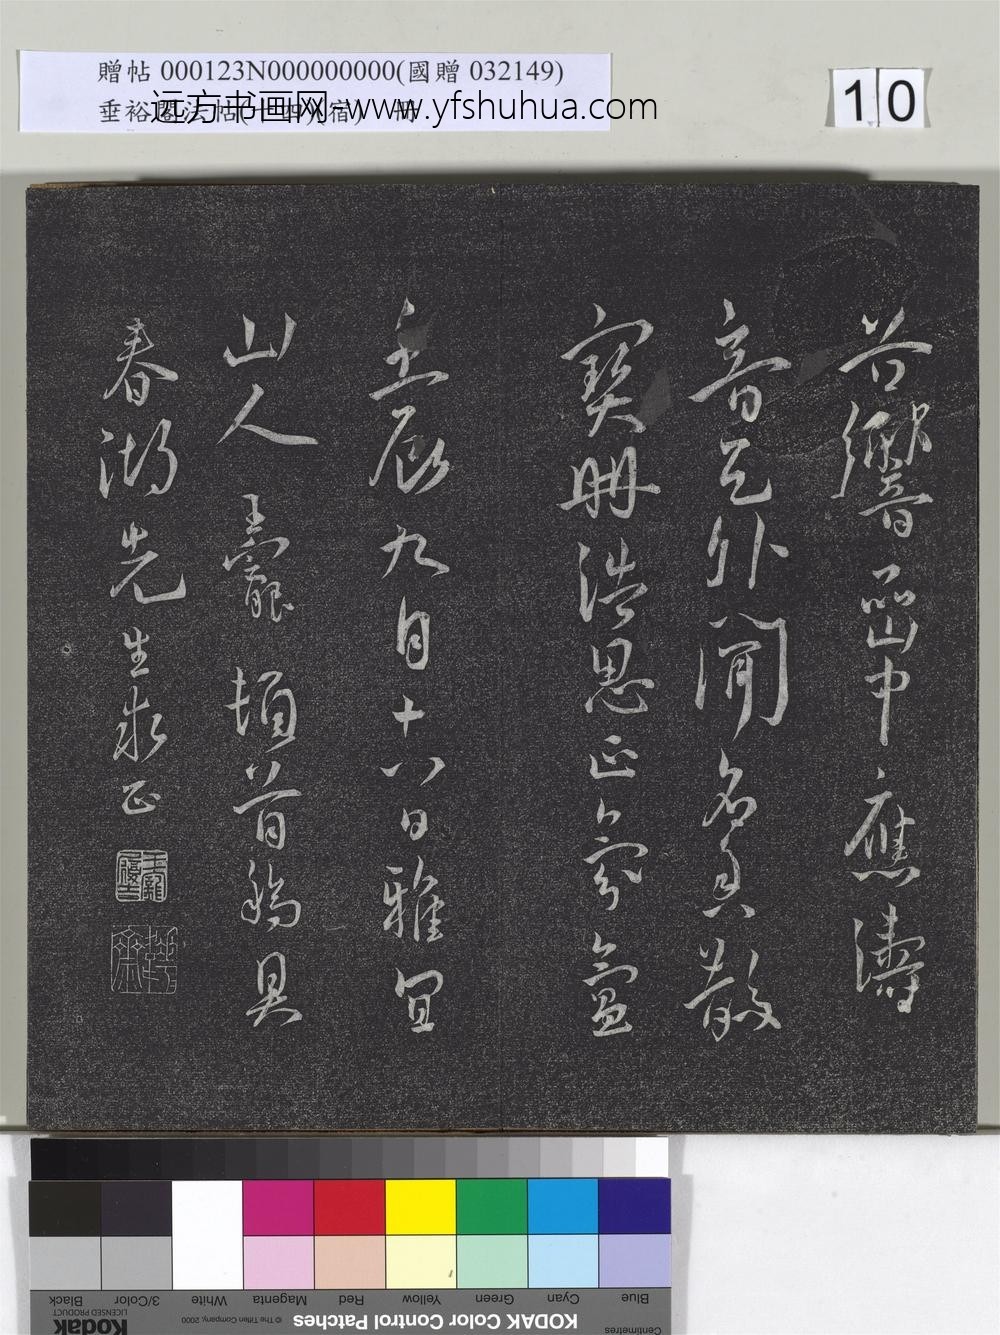 贈帖 000123N000000000(國贈 032149)
垂裕閣法帖(十四)(宿) 冊
远方书画网-www.yfshuhua.com
10
谷響嵒中應濤
音天外聞名真散
寶冊浩思正氛氳
壬辰九月十八日雅宜
山人王寵頓首稿具
春湖先生求正
Black
3/Color
White
Magenta
Red
Yellow
Green
Cyan
Blue
Kodak
LICENSED PRODUCT
© The Tiffen Company, 2000
KODAK Color Control Patches
Centimetres